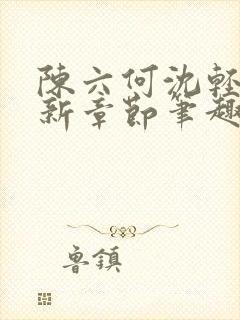 陳六何沈輕
新章節筆趣
魯鎮